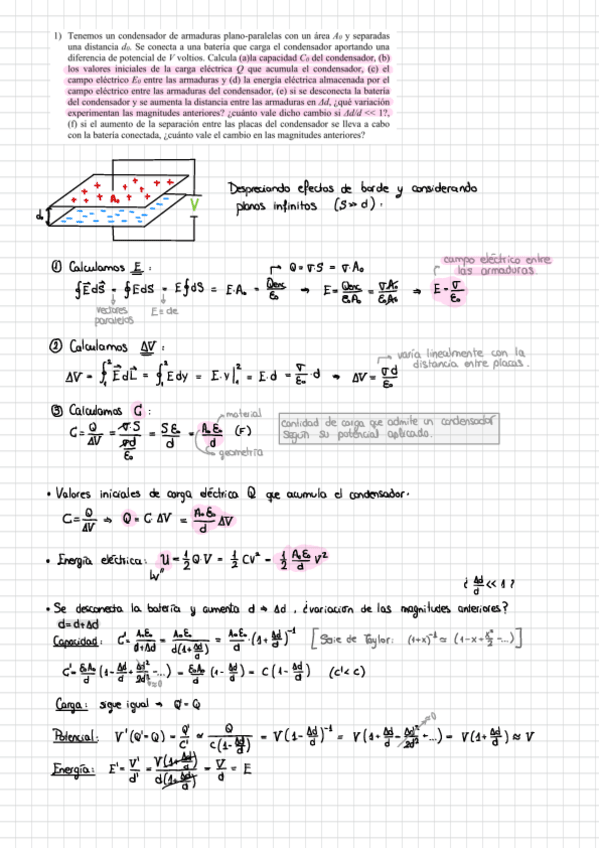 1) Tenemos un condensador de armaduras plano-paralelas con un área A₀ y separadas
una distancia d₀. Se conecta a una batería que carga el condensador aportando una
diferencia de potencial de V voltios. Calcula (a)la capacidad C₀ del condensador, (b)
los valores iniciales de la carga eléctrica Q que acumula el condensador, (c) el
campo eléctrico E₀ entre las armaduras y (d) la energía eléctrica almacenada por el
campo eléctrico entre las armaduras del condensador, (e) si se desconecta la batería
del condensador y se aumenta la distancia entre las armaduras en Δd, ¿qué variación
experimentan las magnitudes anteriores? ¿cuánto vale dicho cambio si Δd/d << 1?,
(f) si el aumento de la separación entre las placas del condensador se lleva a cabo
con la batería conectada, ¿cuánto vale el cambio en las magnitudes anteriores?
A₀
V
d
Despreciando efectos de borde y considerando
planos infinitos (S>>d).
① Calculamos E:
Q = ∇·S = ∇·A₀
campo eléctrico entre
las armaduras.
∮E⃗dS⃗ = ∮EdS = E∮dS = E·A₀ = Qenc/ε₀ → E = Qenc/ε₀A₀ = ∇A₀/ε₀A₀ → E = ∇/ε₀
vectores
paralelos
E=cte
② Calculamos ΔV:
varía linealmente con la
distancia entre placas.
ΔV = ∫₁² E⃗dL⃗ = ∫₁² Edy = E·y|₁² = E·d = ∇/ε₀·d → ΔV = ∇d/ε₀
③ Calculamos C:
material
C = Q/ΔV = ∇·S/(∇d/ε₀) = Sε₀/d = A₀ε₀/d (F)
geometría
cantidad de carga que admite un condensador
según su potencial aplicado.
• Valores iniciales de carga eléctrica Q que acumula el condensador.
C = Q/ΔV → Q = C·ΔV = A₀ε₀/d ΔV
• Energía eléctrica: U = 1/2 Q·V = 1/2 CV² = 1/2 A₀ε₀/d V²
"W"
¿ Δd/d << 1 ?
• Se desconecta la batería y aumenta d → Δd, ¿variación de las magnitudes anteriores?
d = d+Δd
Capacidad: C' = A₀ε₀/d+Δd = A₀ε₀/d(1+Δd/d) = A₀ε₀/d·(1+Δd/d)⁻¹ [Serie de Taylor: (1+x)⁻¹ ≈ (1-x+x²/2-...)]
C' = ε₀A₀/d (1-Δd/d+Δd²/2d²-...) = ε₀A₀/d (1-Δd/d) = C(1-Δd/d) (C'<C)
≈0
Carga: sigue igual → Q' = Q
Potencial: V'(Q'=Q) = Q'/C' ≈ Q/C(1-Δd/d) = V(1-Δd/d)⁻¹ = V(1+Δd/d-Δd²/2d²+...) = V(1+Δd/d) ≈ V
≈0
Energía: E' = V'/d' = V(1+Δd/d)/d(1+Δd/d) = V/d = E